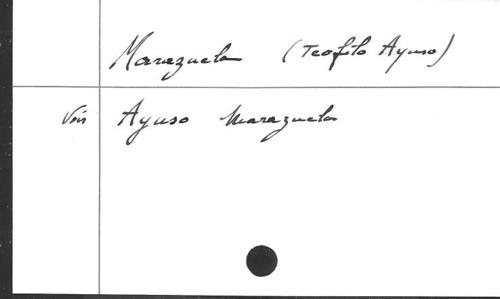 Marazuela (Teofilo Ayuso)
Voir Ayuso Marazuela